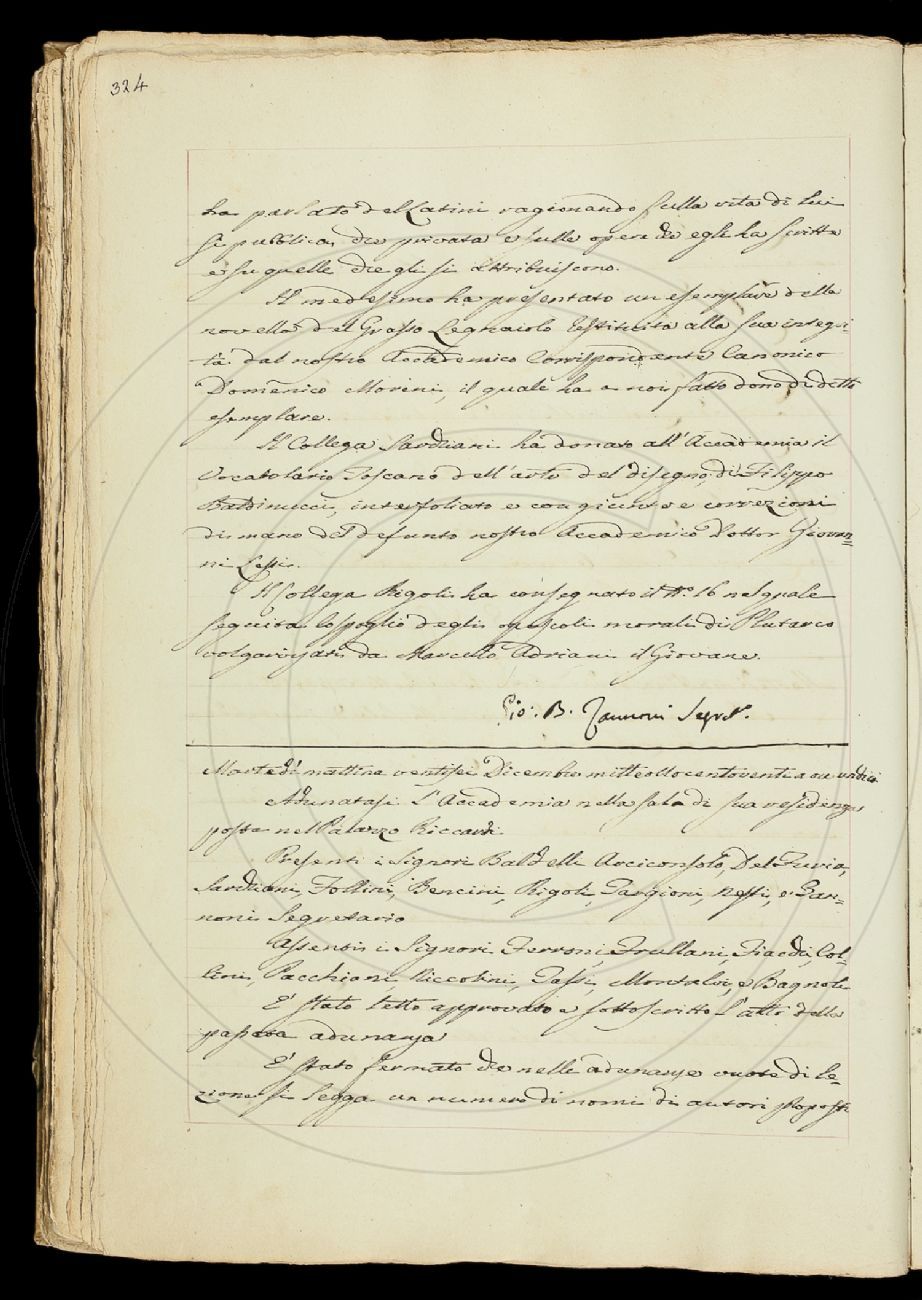 324
ha parlato del Latini ragionando sulla vita di lui
sì pubblica, che privata e sulle opere che egli ha scritte
e su quelle che gli si attribuiscono.
Il medesimo ha presentato un esemplare della
novella del Grasso Legnaiolo restituita alla sua integri-
tà dal nostro Accademico Corrispondente Canonico
Domenico Moreni, il quale ha a noi fatto dono di detto
esemplare.
Il Collega Sarchiani ha donato all'Accademia il
Vocabolario Toscano dell'arte del disegno di Filippo
Baldinucci, interfoliato e con giunte e correzioni
di mano del defunto nostro Accademico Dottor Giovan=
ni Lessi.
Il Collega Rigoli ha consegnato il N.º 16 nel quale
seguita lo spoglio degli opuscoli morali di Plutarco
volgarizzati da Marcello Adriani il Giovane.
Gio: B. Zannoni Segret.º
Martedì mattina ventisei Dicembre milleottocentoventi a ore undici
Adunatasi l'Accademia nella sala di sua residenza
posta nel Palazzo Riccardi.
Presenti i Signori Baldelli Arciconsolo, Del Furia,
Sarchiani, Follini, Bencini, Rigoli, Targioni, Nesti, e Zan=
noni Segretario
Assenti i Signori Ferroni, Frullani, Fiacchi, Col=
lini, Pacchiani, Niccolini, Tassi, Montalvi, e Bagnoli
E' stato letto approvato e sottoscritto l'atto della
passata adunanza
E' stato fermato che nelle adunanze vuote di le=
zione si legga un numero di nomi di autori proposti